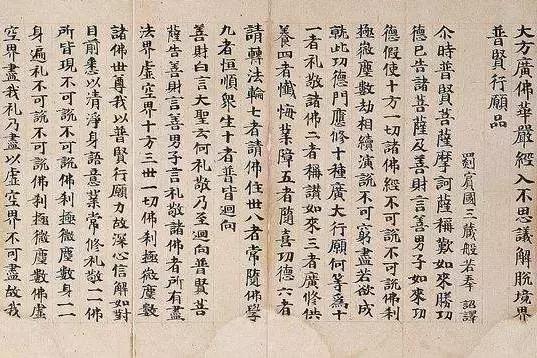 大方廣佛華嚴經入不思議解脫境界
普賢行願品
罽賓國三藏般若奉 詔譯
尒時普賢菩薩摩訶薩稱歎如來勝功
德已告諸菩薩及善財言善男子如來功
德假使十方一切諸佛經不可說不可說佛刹
極微塵數劫相續演說不可窮盡若欲成
就此功德門應修十種廣大行願何等為十
一者礼敬諸佛二者稱讚如來三者廣修供
養四者懺悔業障五者隨喜功德六者
請轉法輪七者請佛住世八者常隨佛學
九者恒順衆生十者普皆迴向
善財白言大聖云何礼敬乃至迴向普賢菩
薩告善財言善男子言礼敬諸佛者所有盡
法界虛空界十方三世一切佛刹極微塵數
諸佛世尊我以普賢行願力故深心信解如對
目前悉以清淨身語意業常修礼敬一一佛
所皆現不可說不可說佛刹極微塵數身一一
身遍礼不可說不可說佛刹極微塵數佛虛
空界盡我礼乃盡以虛空界不可盡故我